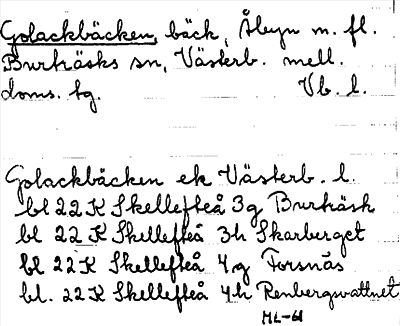 Golackbäcken, bäck, Åbyn m. fl.
Burträsks sn, Västerb. mell.
doms. tg. Vb. l.
Golackbäcken ek Västerb. l.
bl 22 K Skellefteå 3g Burträsk
bl 22 K Skellefteå 3h Skarberget
bl 22 K Skellefteå 4g Forsnäs
bl. 22 K Skellefteå 4h Renbergsvattnet
ML-61